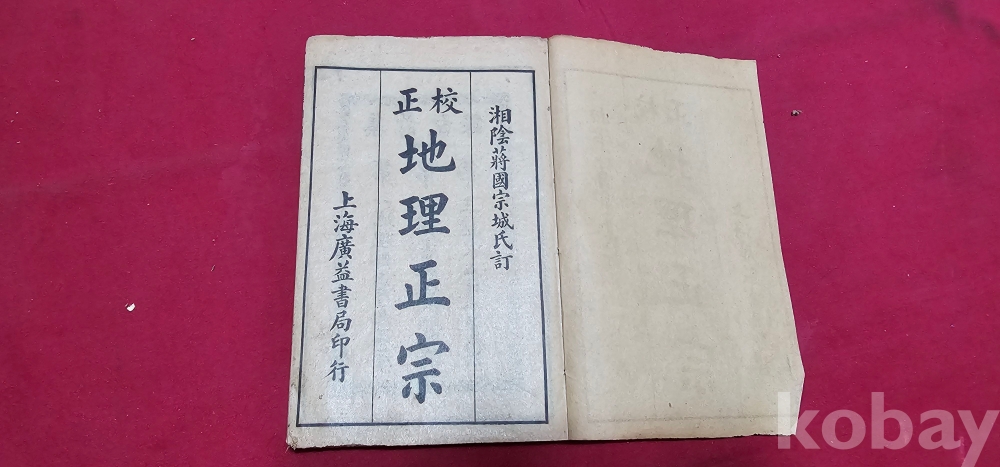 湘陰蔣國宗城氏訂
校正
地理正宗
上海廣益書局印行
kobay